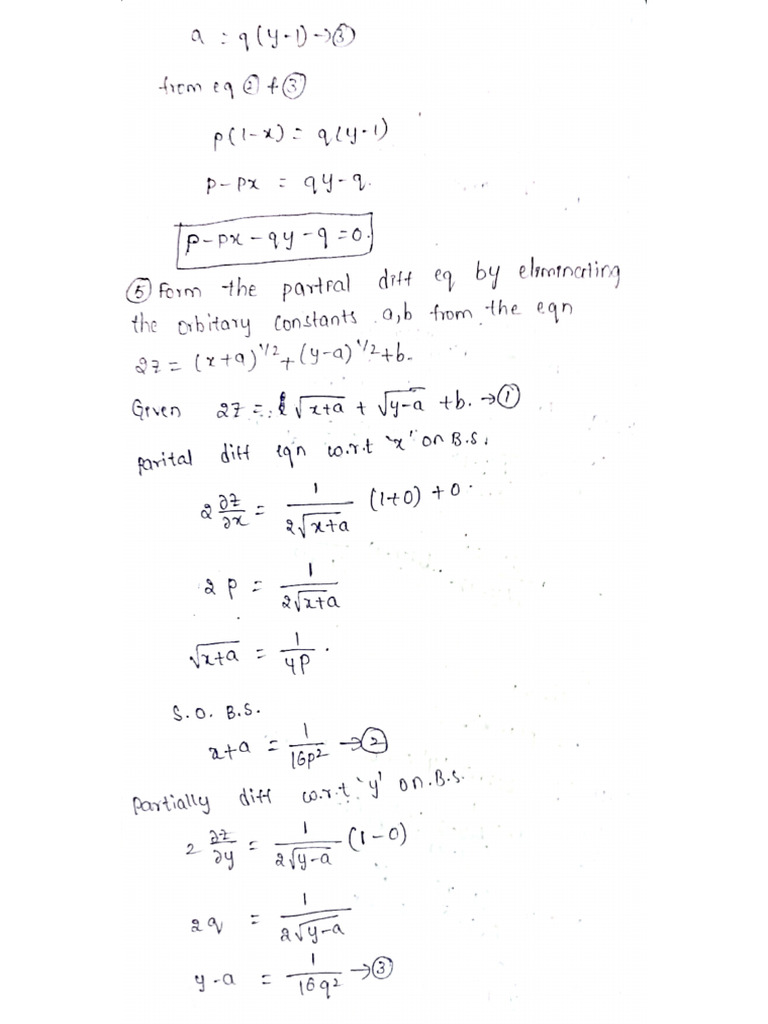 a : q(y-1) → ③
from eq ② & ③
p(1-x) = q(y-1)
p-px = qy-q.
p-px-qy-q=0.
⑤ Form the partial diff eq by eliminating
the orbitary constants a,b from the eqn
2z = (x+a)^1/2 + (y-a)^1/2 + b.
Given 2z = √x+a + √y-a + b. → ①
parital diff eqn w.r.t 'x' on B.S.
2 ∂z/∂x = 1/2√x+a (1+0) + 0.
2p = 1/2√x+a
√x+a = 1/4p.
S.O.B.S.
x+a = 1/16p² → ②
partially diff w.r.t 'y' on.B.S.
2 ∂z/∂y = 1/2√y-a (1-0)
2q = 1/2√y-a
y-a = 1/16q² → ③